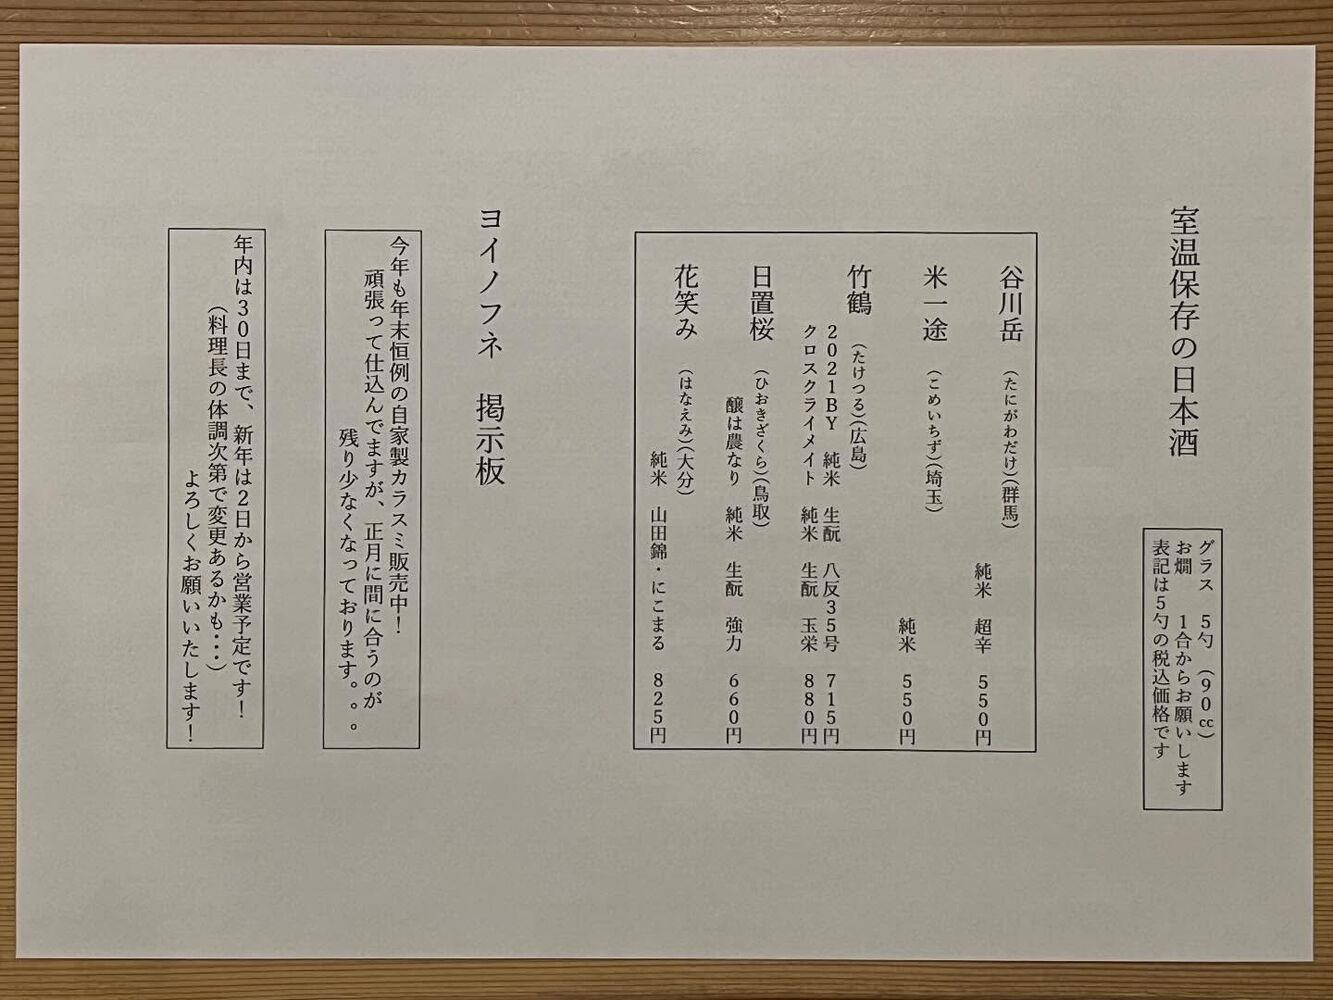 室温保存の日本酒
グラス　5勺　(90㏄)
お燗　1合からお願いします
表記は5勺の税込価格です
谷川岳　(たにがわだけ)(群馬)
純米　超辛　550円
米一途　(こめいちず)(埼玉)
純米　550円
竹鶴　(たけつる)(広島)
2021BY　純米　生酛　八反35号　715円
クロスクライメイト　純米　生酛　玉栄　880円
日置桜　(ひおきざくら)(鳥取)
醸は農なり　純米　生酛　強力　660円
花笑み　(はなえみ)(大分)
純米　山田錦・にこまる　825円
ヨイノフネ　掲示板
今年も年末恒例の自家製カラスミ販売中！
頑張って仕込んでますが、正月に間に合うのが
残り少なくなっております。。。
年内は30日まで、新年は2日から営業予定です！
(料理長の体調次第で変更あるかも・・・)
よろしくお願いいたします！